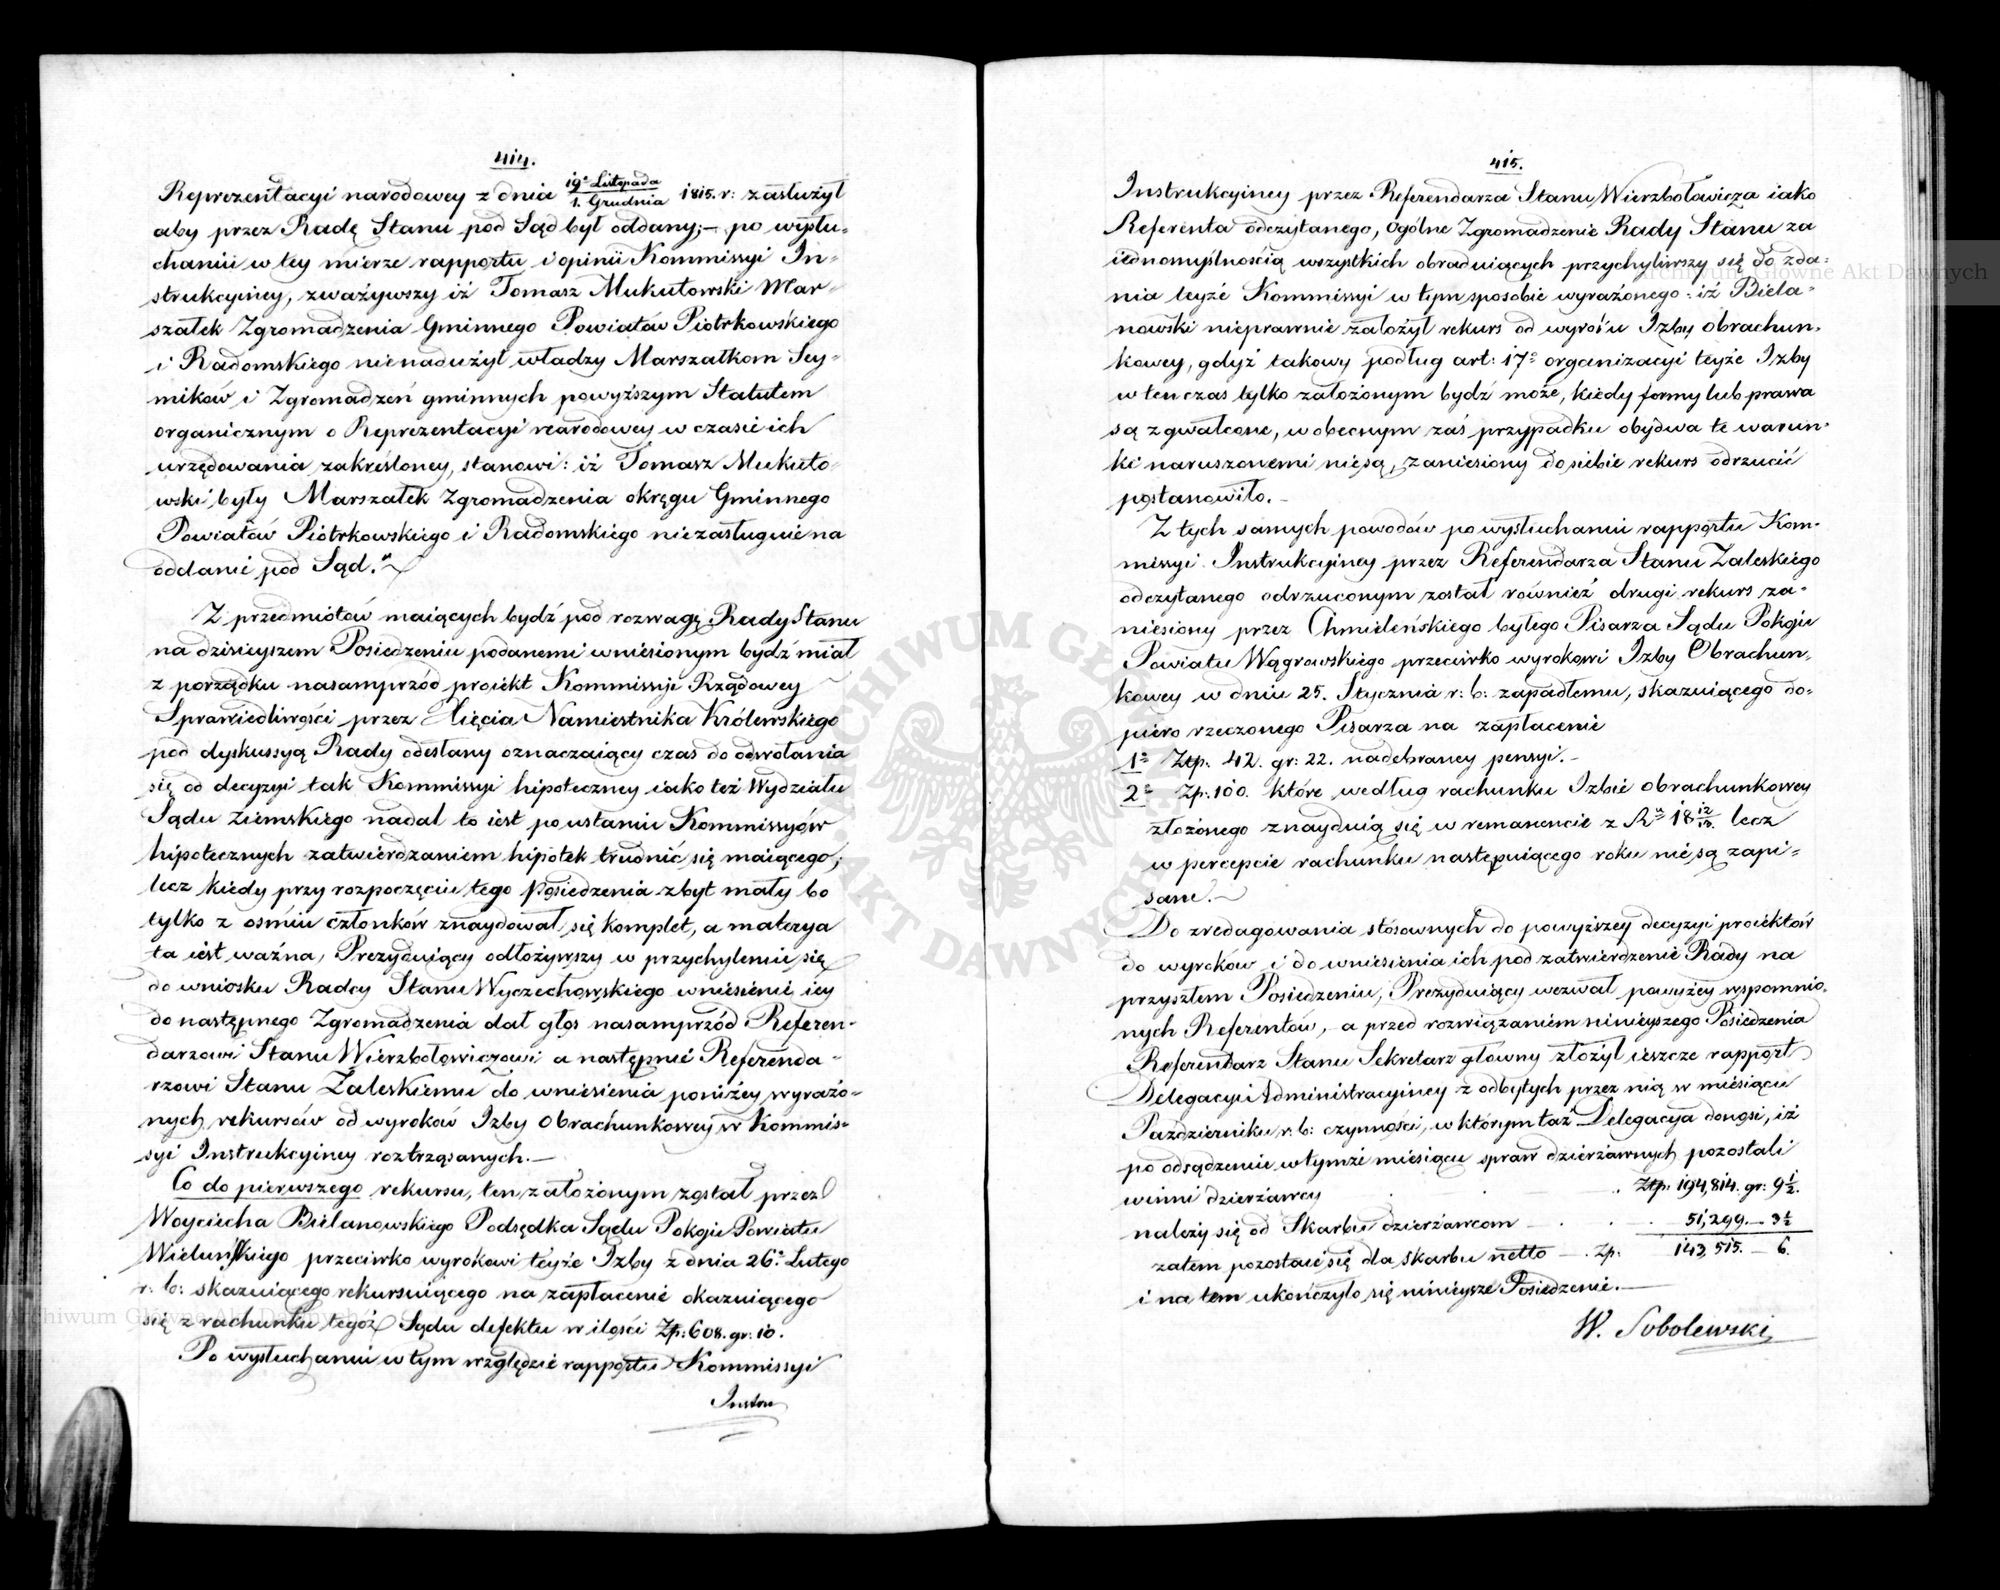 414.
Reprezentacyi narodowey z dnia 19° Listopada / 1. Grudnia 1815. r: zasłużył
aby przez Radę Stanu pod Sąd był oddany; – po wysłu-
chaniu w tey mierze rapportu i opinii Kommissyi In-
strukcyiney, zważywszy iż Tomasz Mukułowski Mar-
szałek Zgromadzenia Gminnego Powiatów Piotrkowskiego
i Radomskiego nienadużył władzy Marszałkom Sey-
mików i Zgromadzeń gminnych powyższym Statutem
organicznym o Reprezentacyi narodowey w czasie ich
urzędowania zakreśloney, stanowi: iż Tomasz Mukuło-
wski były Marszałek Zgromadzenia okręgu Gminnego
Powiatów Piotrkowskiego i Radomskiego niezasługuie na
oddanie pod Sąd."
Z przedmiotów maiących bydź pod rozwagę Rady Stanu
na dzisieyszem Posiedzeniu podanemi wniesionym bydź miał
z porządku nasamprzód proiekt Kommissyi Rządowey
Sprawiedliwości przez Xięcia Namiestnika Królewskiego
pod dyskussyą Rady odesłany oznaczaiący czas do odwołania
się od decyzyi tak Kommissyi hipoteczney iako też Wydziału
Sądu Ziemskiego nadal to iest po ustaniu Kommissyów
hipotecznych zatwierdzaniem hipotek trudnić się maiącego;
lecz kiedy przy rozpoczęciu tego Posiedzenia zbyt mały bo
tylko z ośmiu członków znaydował się komplet, a materya
ta iest ważna, Prezyduiący odłożywszy w przychyleniu się
do wniosku Radcy Stanu Wyczechowskiego wniesienie iey
do następnego Zgromadzenia dał głos nasamprzód Referen-
darzowi Stanu Wierzbołowiczowi a następnie Referenda-
rzowi Stanu Zaleskiemu do wniesienia poniżey wyrażo-
nych rekursów od wyroków Izby Obrachunkowey w Kommis-
syi Instrukcyiney roztrząsanych. –
Co do pierwszego rekursu, ten założonym został przez
Woyciecha Bielanowskiego Podsędka Sądu Pokoju Powiatu
Wieluńskiego przeciwko wyrokowi teyże Izby z dnia 26° Lutego
r: b: skazuiącego rekursuiącego na zapłacenie okazuiącego
się z rachunku tegoż Sądu defektu w ilości Zp: 608. gr: 10.
Po wysłuchaniu w tym względzie rapportu Kommissyi
Instru
415.
Instrukcyiney przez Referendarza Stanu Wierzbołowicza iako
Referenta odczytanego, Ogólne Zgromadzenie Rady Stanu za
iednomyślnością wszystkich obraduiących przychyliwszy się do zda-
nia teyże Kommissyi w tym sposobie wyrażonego: iż Biela-
nowski nieprawnie założył rekurs od wyroku Izby Obrachun-
kowey, gdyż takowy podług art: 17° organizacyi teyże Izby
w ten czas tylko założonym bydź może, kiedy formy lub prawa
są zgwałcone, w obecnym zaś przypadku obydwa te warun-
ki naruszonemi nie są, zaniesiony do siebie rekurs odrzucić
postanowiło. –
Z tych samych powodów po wysłuchaniu rapportu Kom-
missyi Instrukcyiney przez Referendarza Stanu Zaleskiego
odczytanego odrzuconym został również drugi rekurs za-
niesiony przez Chmieleńskiego byłego Pisarza Sądu Pokoju
Powiatu Wągrowskiego przeciwko wyrokowi Izby Obrachun-
kowey w dniu 25. Stycznia r: b: zapadłemu, skazuiącego do-
piero rzeczonego Pisarza na zapłacenie
1° Złp: 42. gr: 22. nadebraney pensyi. –
2° Zp: 100. które według rachunku Izbie obrachunkowey
złożonego znayduią się w remanencie z Ru 18 12/13. lecz
w percepcie rachunku następuiącego roku nie są zapi-
sane. –
Do zredagowania stósownych do powyższey decyzyi proiektów
do wyroków i do wniesienia ich pod zatwierdzenie Rady na
przyszłem Posiedzeniu, Prezyduiący wezwał powyżey wspomnio-
nych Referentów, a przed rozwiązaniem ninieyszego Posiedzenia
Referendarz Stanu Sekretarz główny złożył ieszcze rapport
Delegacyi Administracyiney z odbytych przez nią w miesiącu
Październiku r: b: czynności, w którym taż Delegacya donosi, iż
po odsądzeniu w tymże miesiącu spraw dzierżawnych pozostali
winni dzierżawcy . . . Złp: 194,814. gr: 9 1/2.
należy się od Skarbu dzierżawcom – . . – 51,299. – 3 1/2
zatem pozostaie się dla skarbu netto – . Zp: 143,515. – 6.
i na tem ukończyło się ninieysze Posiedzenie. –
W. Sobolewski
ARCHIWUM GŁÓWNE AKT DAWNYCH
Archiwum Główne Akt Dawnych
Archiwum Główne Akt Dawnych